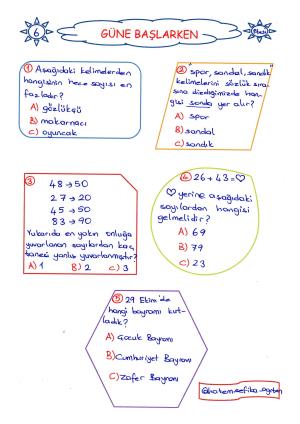 6
GÜNE BAŞLARKEN
① Aşağıdaki kelimelerden
hangisinin hece sayısı en
fazladır?
A) gözlükçü
B) makarnacı
C) oyuncak
② "spor, sandal, sandık"
kelimelerini sözlük sıra-
sına dizdiğimizde han-
gisi sonda yer alır?
A) spor
B) sandal
C) sandık
③ 48→50
27→20
45→50
83→90
Yukarıda en yakın onluğa
yuvarlanan sayılardan kaç
tanesi yanlış yuvarlanmıştır?
A) 1 B) 2 C) 3
④ 26+43=♡
♡ yerine aşağıdaki
sayılardan hangisi
gelmelidir?
A) 69
B) 79
C) 23
⑤ 29 Ekim'de
hangi bayramı kut-
ladık?
A) Çocuk Bayramı
B) Cumhuriyet Bayramı
C) Zafer Bayramı